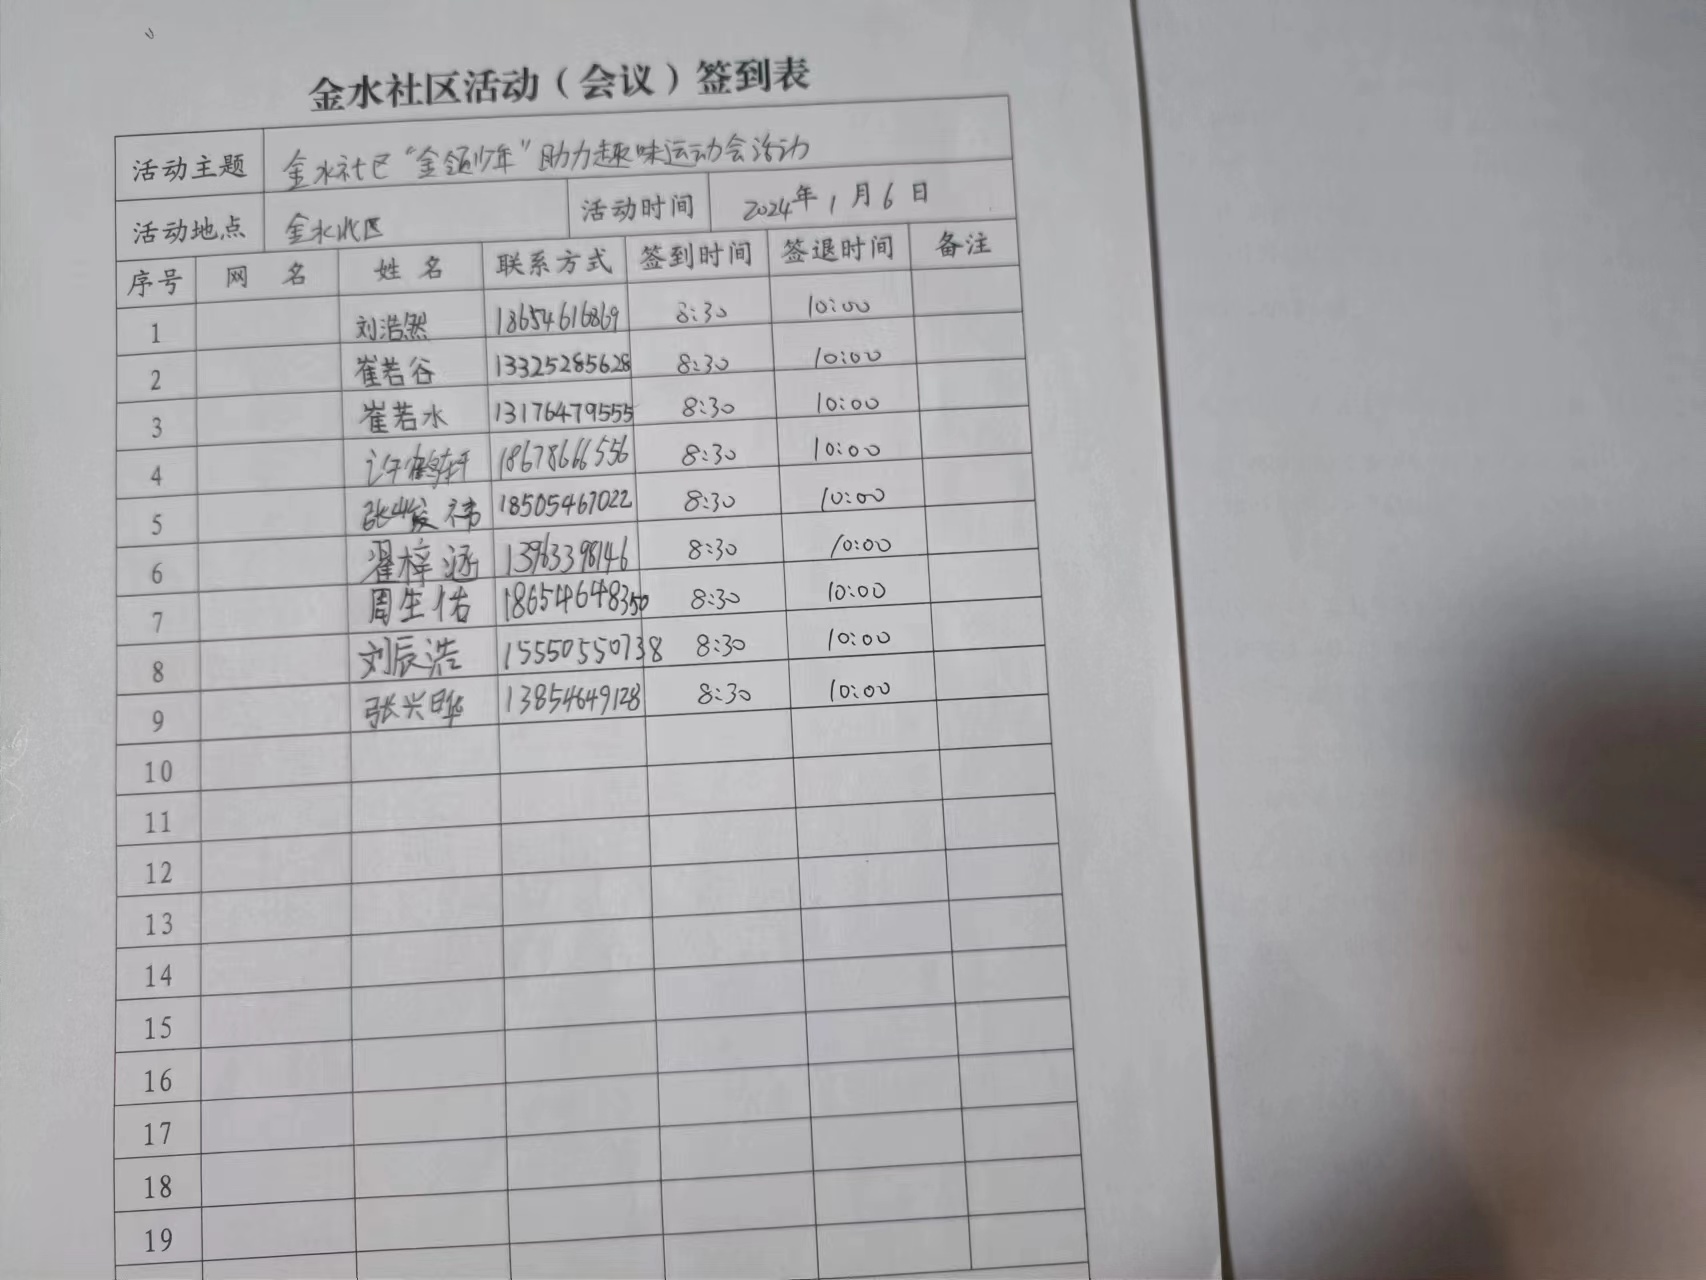 金水社区活动（会议）签到表
活动主题 金水社区“金领少年”助力趣味运动会活动
活动地点 金水北区 活动时间 2024年1月6日
序号 网 名 姓 名 联系方式 签到时间 签退时间 备注
1 刘浩然 18654616869 8:30 10:00
2 崔若谷 13325285628 8:30 10:00
3 崔若水 13176479555 8:30 10:00
4 许鹤轩 18678666556 8:30 10:00
5 张峻祎 18505467022 8:30 10:00
6 翟梓涵 13963398146 8:30 10:00
7 周生佑 18654648350 8:30 10:00
8 刘辰浩 15550550738 8:30 10:00
9 张兴晔 13854649128 8:30 10:00
10
11
12
13
14
15
16
17
18
19